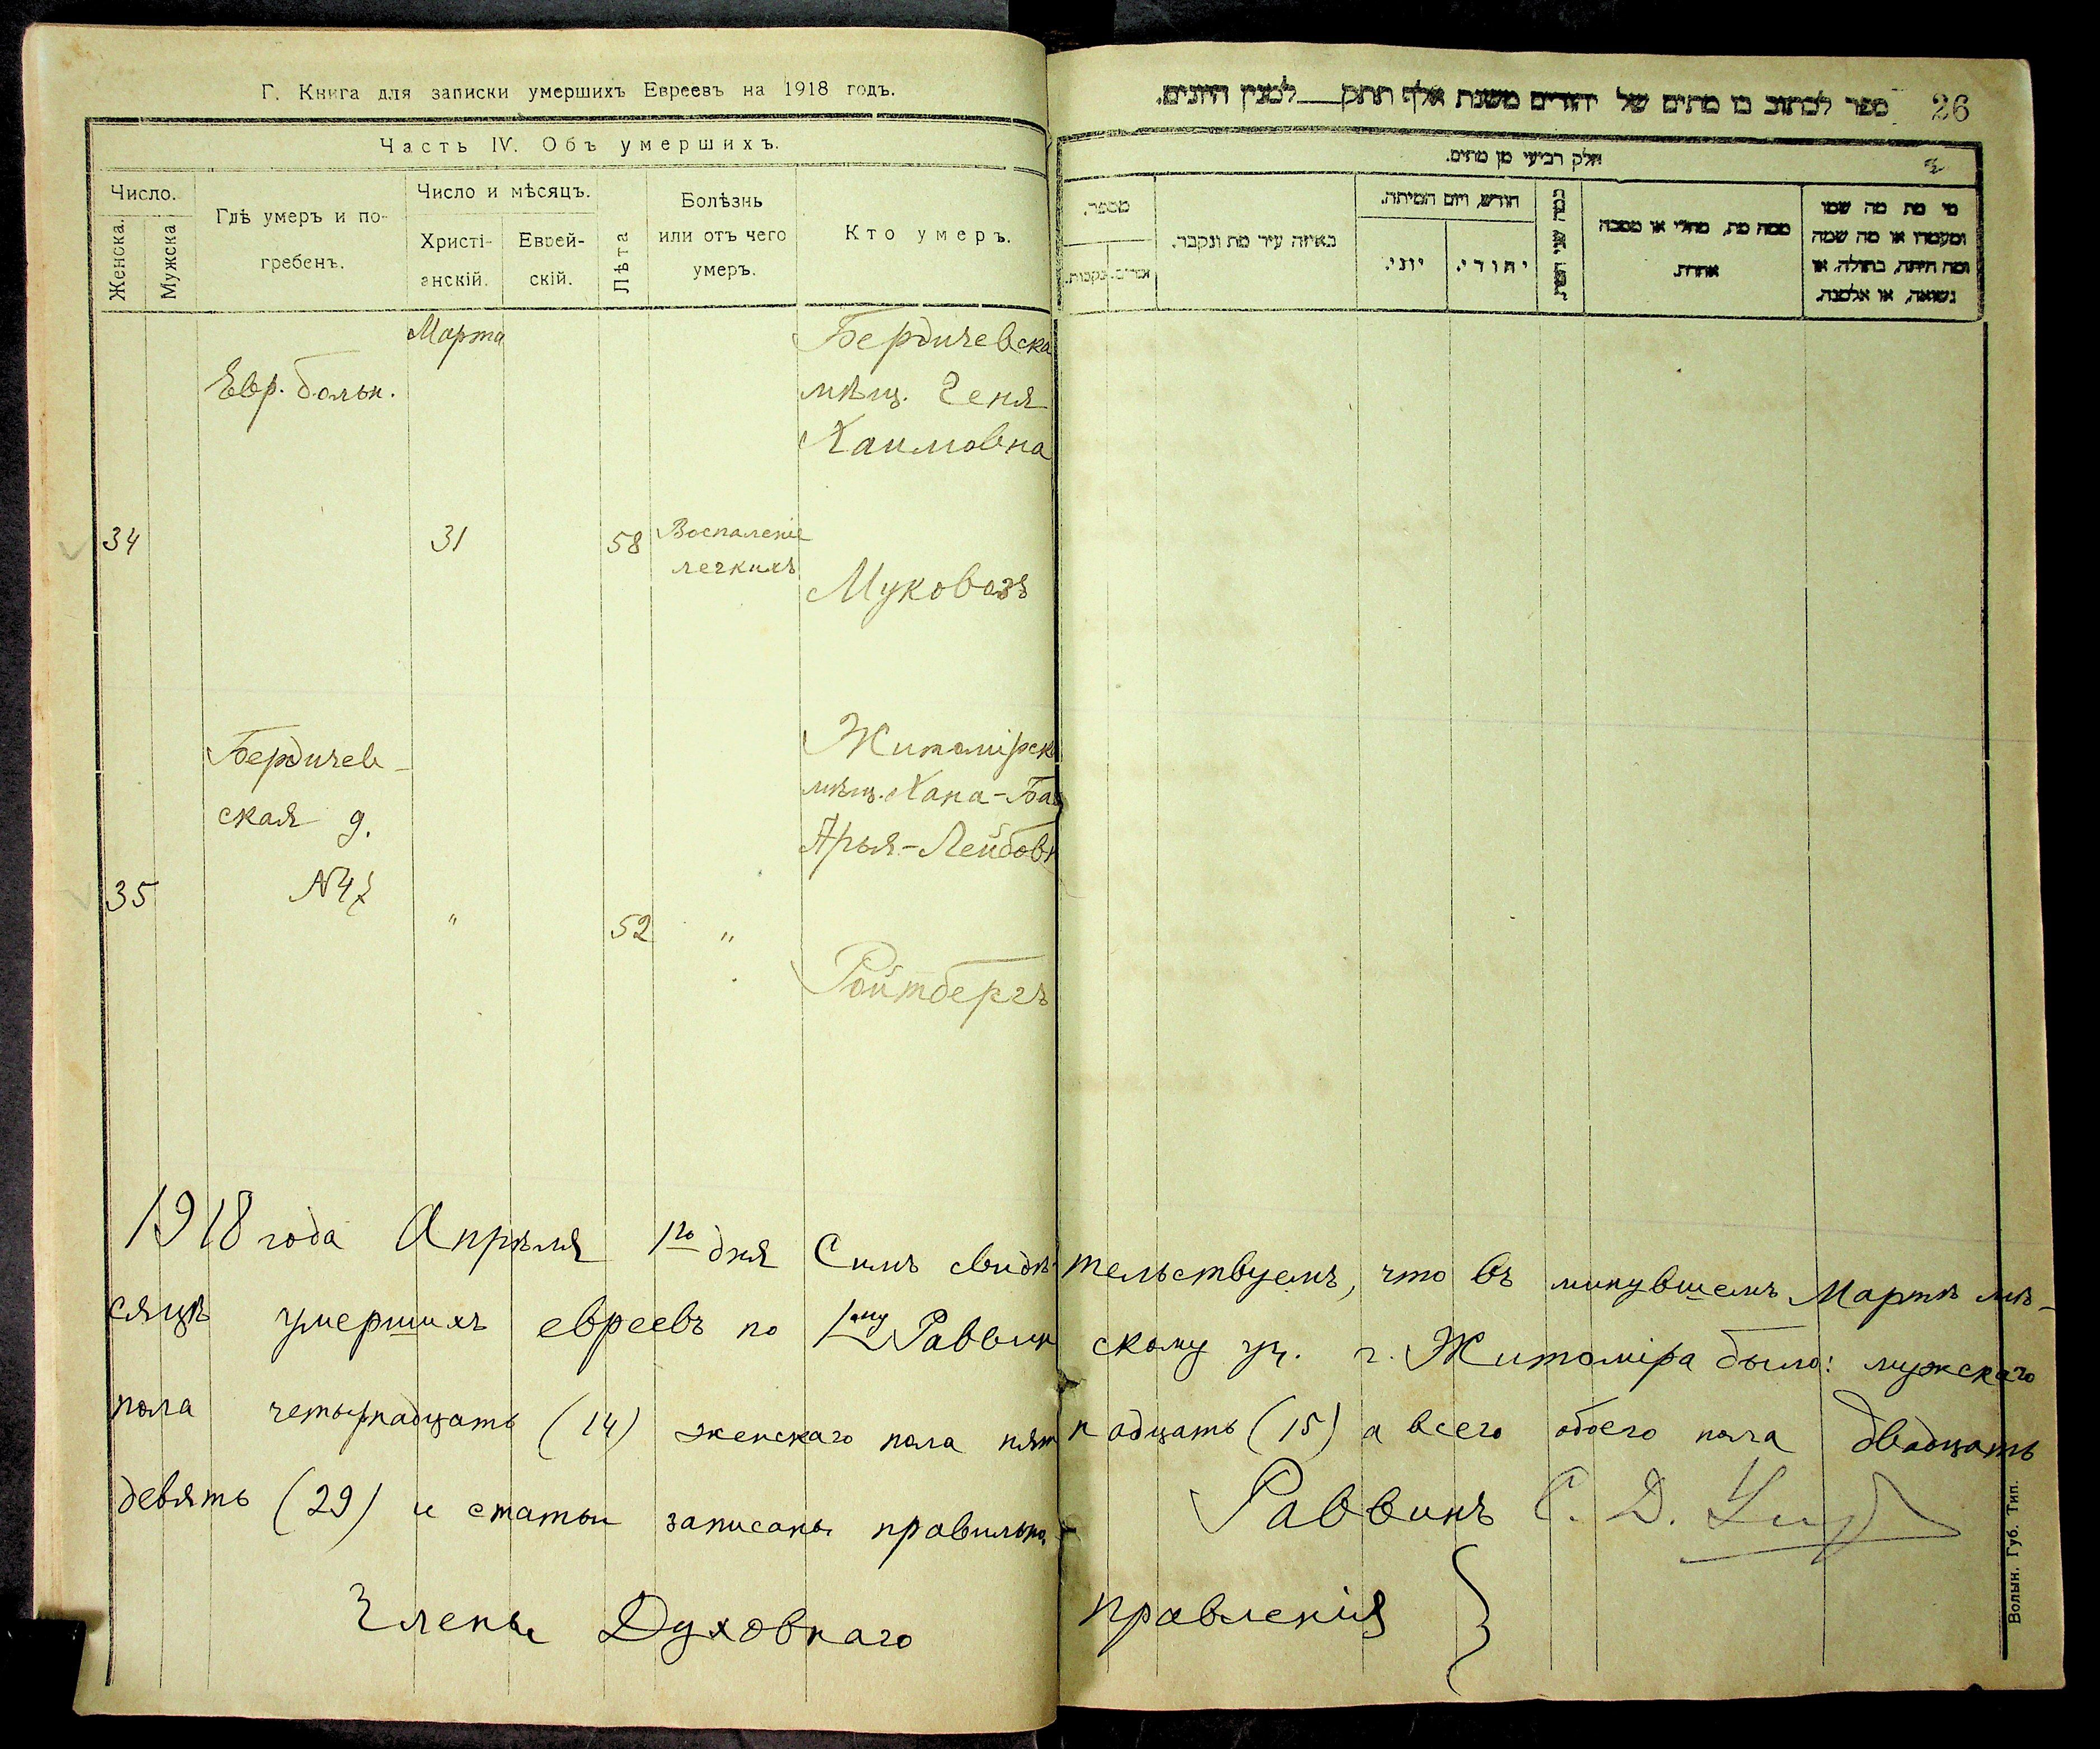 Г. Книга для записки умершихъ Евреевъ на 1918 годъ.
Часть IV. Объ умершихъ.
Число.
Женска.
Мужска
Гдѣ умеръ и по-
гребенъ.
Число и мѣсяцъ.
Христі-
анскій.
Еврей-
скій.
Лѣта
Болѣзнь
или отъ чего
умеръ.
Кто умеръ.
Марта
Евр. больн.
Бердичевска
мѣщ. Геня
Хаимовна
34
31
58
Воспаленіе
легкихъ
Муковозъ
Бердичев-
ская д.
№47
Житомірск
мѣщ. Хана-Ба
Арья-Лейбовн
35
"
52
"
Ройтбергъ
26
ספר לכתוב בו מתים של יהודים משנת אלף תתק למנין היונים.
חלק רביעי מן מתים.
מספר.
זכרים.
נקבות.
באיזה עיר מת ונקבר.
חודש, ויום המיתה.
יוני.
יהודי.
כמה שני המת
ממה מת, מחלי או מסבה
אחרת.
מי מת מה שמו
ומעמדו או מה שמה
ומה היתה, בתולה, או
נשואה, או אלמנה.
1918 года Апрѣля 1го дня Симъ свидѣтельствуемъ, что въ минувшемъ Мартѣ мѣ-
сяцѣ умершихъ евреевъ по 1му Раввинскому уч. г. Житоміра было: мужскаго
пола четырнадцать (14) женскаго пола пятнадцать (15) а всего обоего пола двадцать
девять (29) и статьи записаны правильно.
Раввинъ С. Д.
Члены Духовнаго правленія
Волын. Губ. Тип.